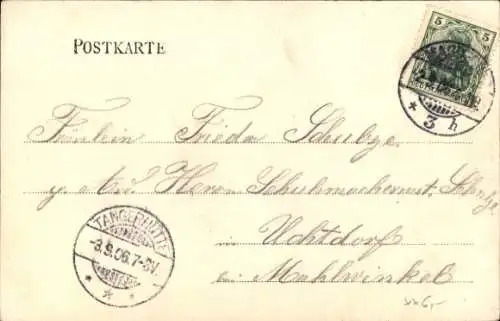 POSTKARTE
5 5
* 3 h
Fräulein Frieda Schulze
Herrn Schuhmachermst. Schulze
in Uchtdorf
bei Mahlwinkel
TANGERHÜTTE
-8.9.06.7-8V.
* *
xx6,-